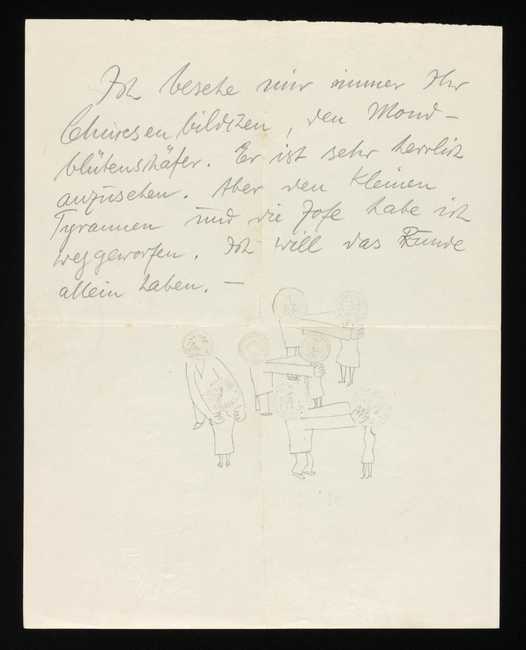 Ich besehe mir immer Ihr
Chinesenbildchen, den Mond-
blütenschäfer. Er ist sehr herrlich
anzusehen. Aber den Kleinen
Tyrannen und die Zofe habe ich
weggeworfen. Ich will das Runde
allein haben. —